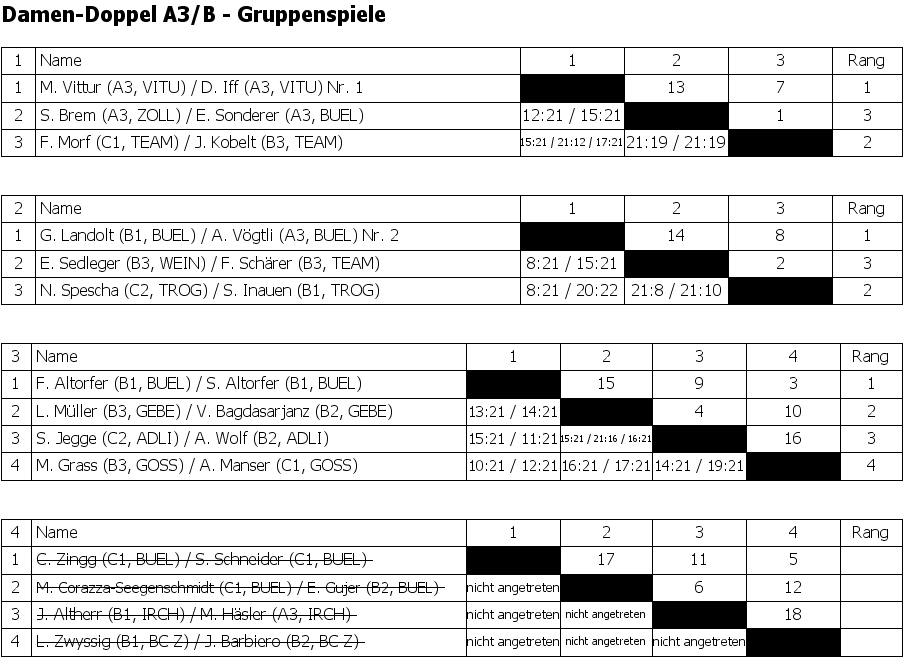 Damen-Doppel A3/B - Gruppenspiele
1 Name 1 2 3 Rang
1 M. Vittur (A3, VITU) / D. Iff (A3, VITU) Nr. 1 13 7 1
2 S. Brem (A3, ZOLL) / E. Sonderer (A3, BUEL) 12:21 / 15:21 1 3
3 F. Morf (C1, TEAM) / J. Kobelt (B3, TEAM) 15:21 / 21:12 / 17:21 21:19 / 21:19 2
2 Name 1 2 3 Rang
1 G. Landolt (B1, BUEL) / A. Vögtli (A3, BUEL) Nr. 2 14 8 1
2 E. Sedleger (B3, WEIN) / F. Schärer (B3, TEAM) 8:21 / 15:21 2 3
3 N. Spescha (C2, TROG) / S. Inauen (B1, TROG) 8:21 / 20:22 21:8 / 21:10 2
3 Name 1 2 3 4 Rang
1 F. Altorfer (B1, BUEL) / S. Altorfer (B1, BUEL) 15 9 3 1
2 L. Müller (B3, GEBE) / V. Bagdasarjanz (B2, GEBE) 13:21 / 14:21 4 10 2
3 S. Jegge (C2, ADLI) / A. Wolf (B2, ADLI) 15:21 / 11:21 15:21 / 21:16 / 16:21 16 3
4 M. Grass (B3, GOSS) / A. Manser (C1, GOSS) 10:21 / 12:21 16:21 / 17:21 14:21 / 19:21 4
4 Name 1 2 3 4 Rang
1 C. Zingg (C1, BUEL) / S. Schneider (C1, BUEL) 17 11 5
2 M. Corazza-Seegenschmidt (C1, BUEL) / E. Gujer (B2, BUEL) nicht angetreten 6 12
3 J. Altherr (B1, IRCH) / M. Häsler (A3, IRCH) nicht angetreten nicht angetreten 18
4 L. Zwyssig (B1, BC Z) / J. Barbiero (B2, BC Z) nicht angetreten nicht angetreten nicht angetreten